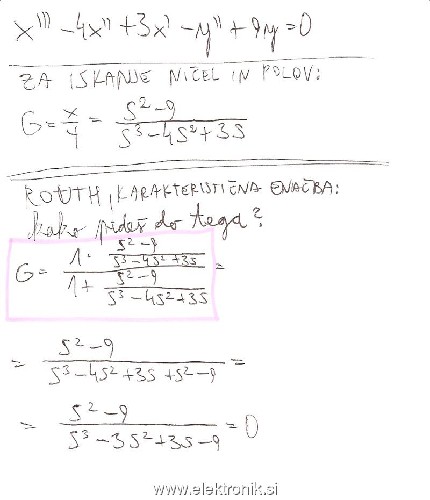 x''' - 4x'' + 3x' - y'' + 9y = 0
ZA ISKANJE NIČEL IN POLOV:
G = x/y = (s² - 9)/(s³ - 4s² + 3s)
ROUTH, KARAKTERISTIČNA ENAČBA:
kako prideš do tega?
G = (1 · (s² - 9)/(s³ - 4s² + 3s))/(1 + (s² - 9)/(s³ - 4s² + 3s)) =
= (s² - 9)/(s³ - 4s² + 3s + s² - 9) =
= (s² - 9)/(s³ - 3s² + 3s - 9) = 0
www.elektronik.si